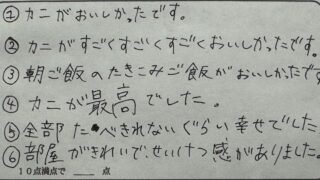 ① カニがおいしかったです。
② カニがすごくすごくすごくおいしかったです。
③ 朝ご飯のたきこみご飯がおいしかたです
④ カニが最高でした。
⑤ 全部たべきれないぐらい幸せでした
⑥ 部屋がきれいで、せいけつ感がありました。
10点満点で ___ 点